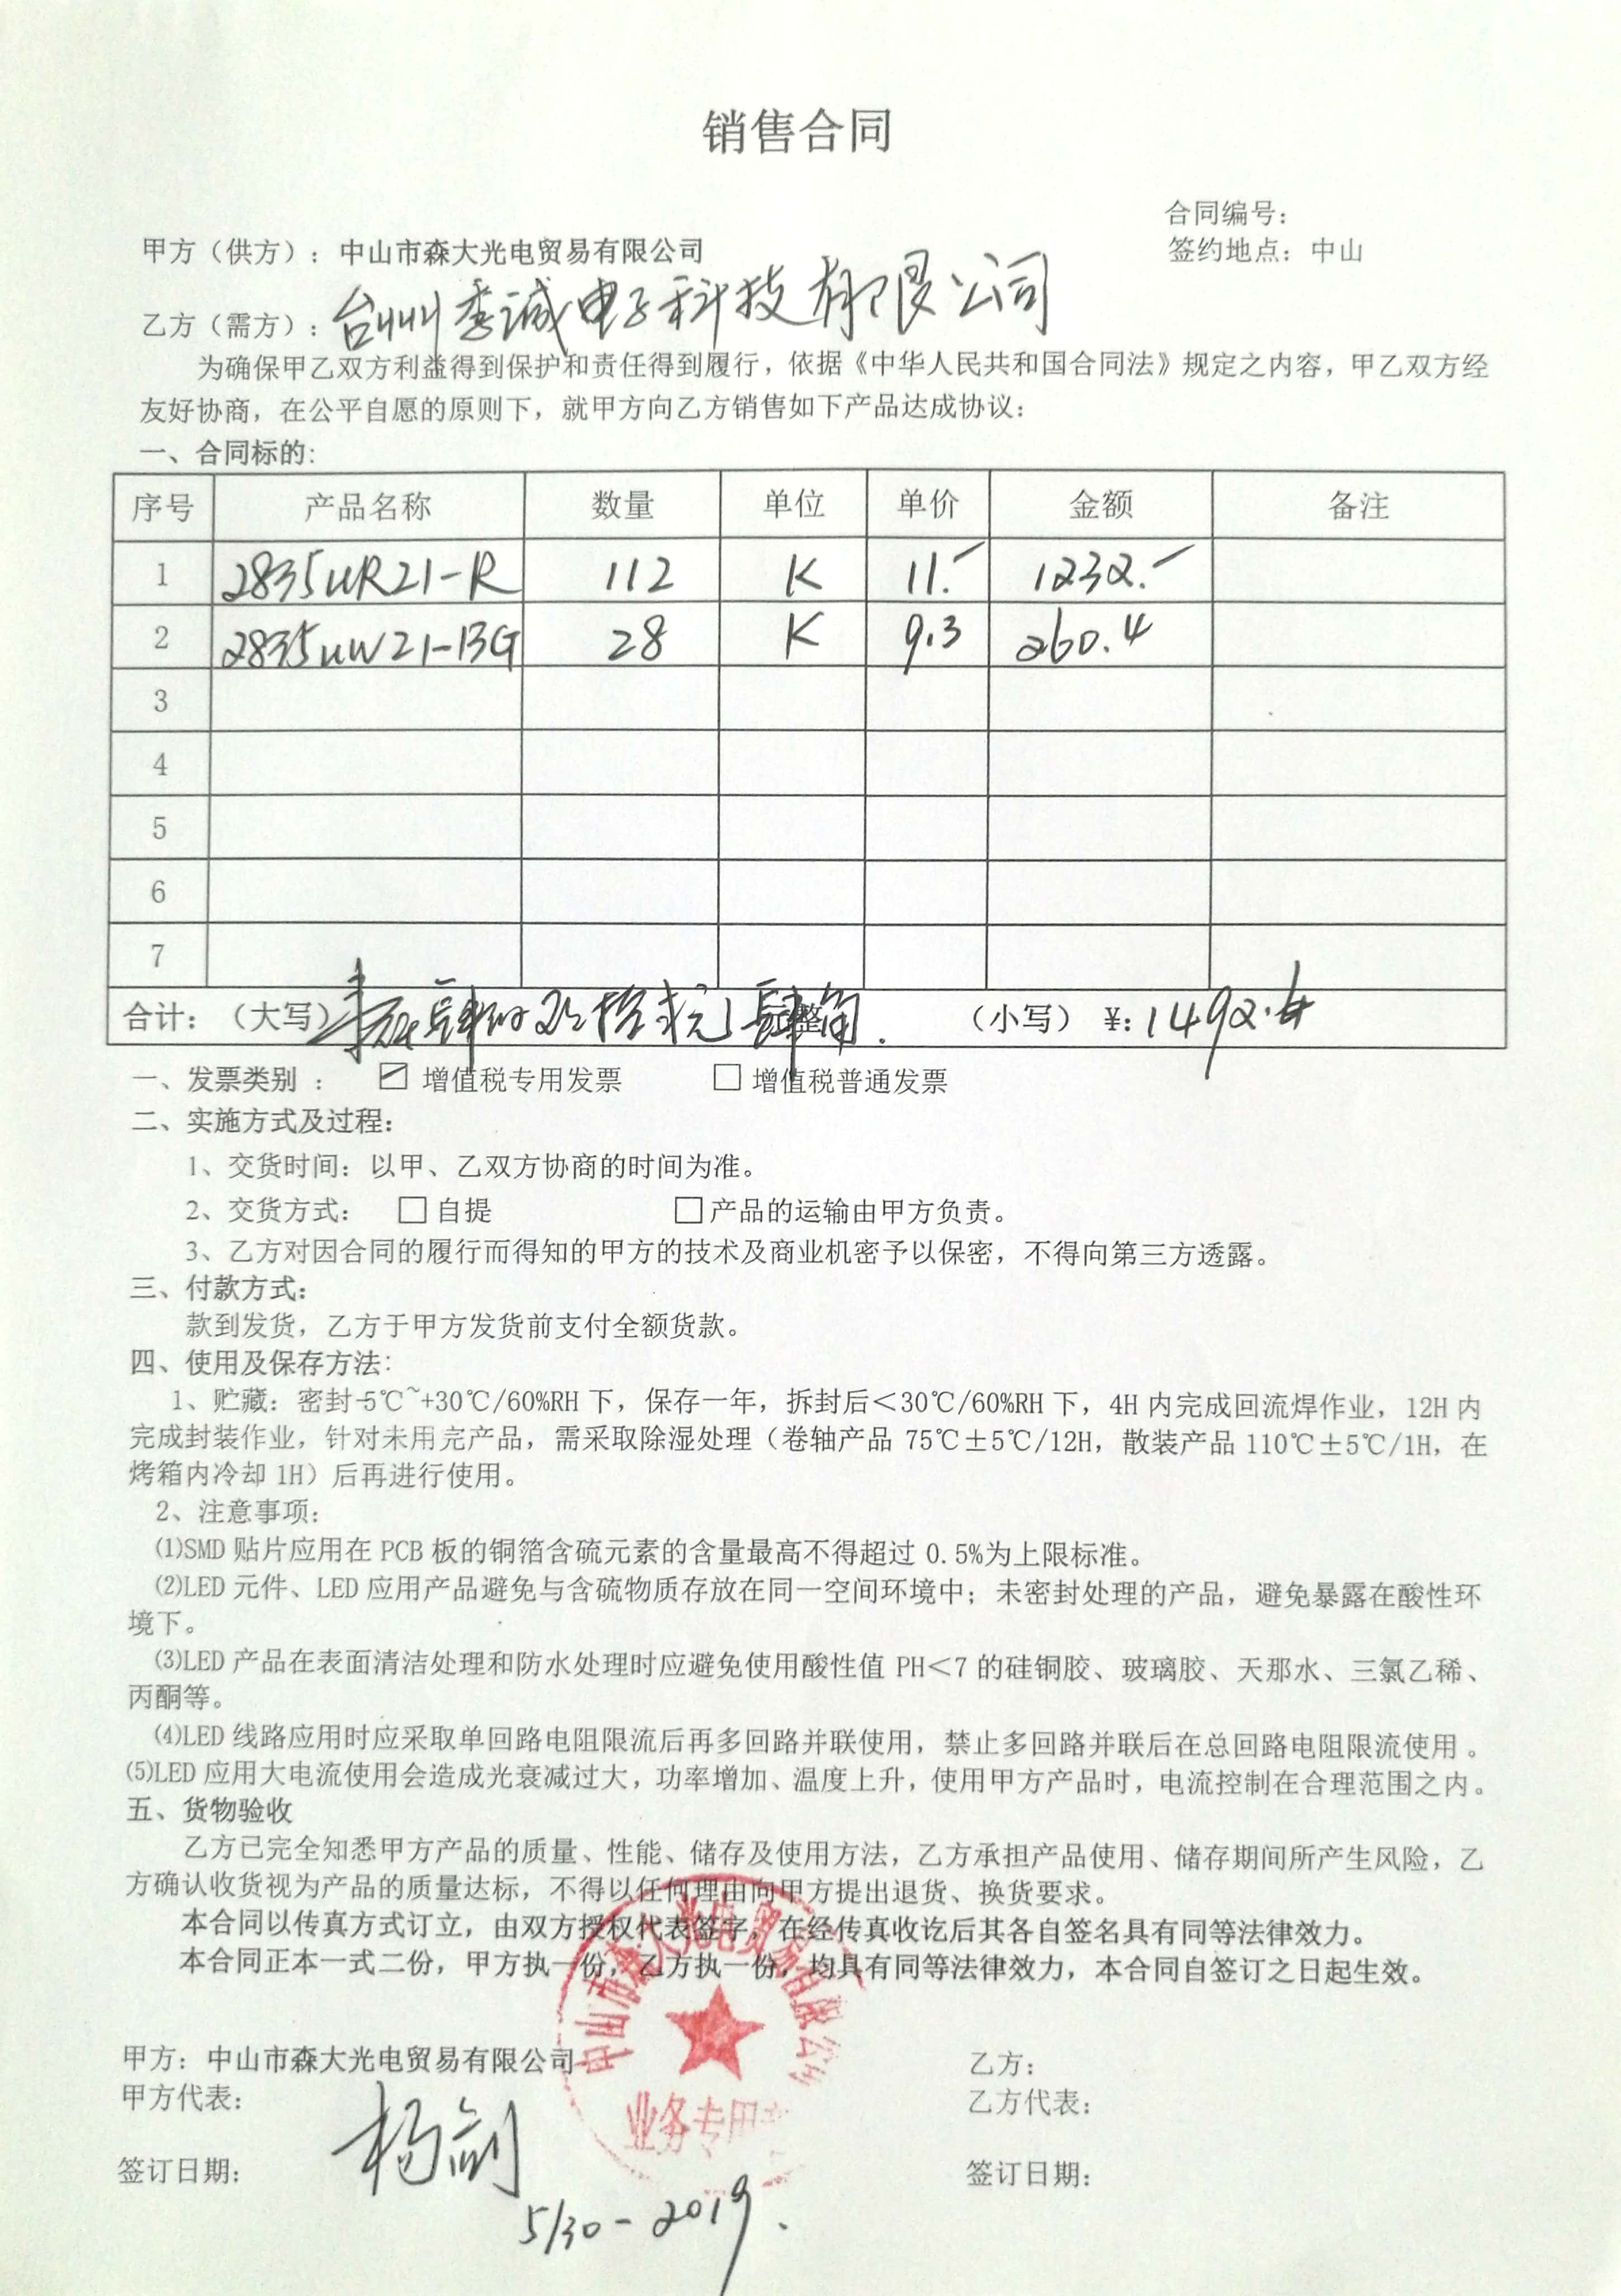 销售合同
合同编号：
甲方（供方）：中山市森大光电贸易有限公司
签约地点：中山
乙方（需方）：台州季诚电子科技有限公司
为确保甲乙双方利益得到保护和责任得到履行，依据《中华人民共和国合同法》规定之内容，甲乙双方经
友好协商，在公平自愿的原则下，就甲方向乙方销售如下产品达成协议：
一、合同标的：
序号 产品名称 数量 单位 单价 金额 备注
1 2835UR21-R 112 K 11.- 1232.-
2 2835UW21-13G 28 K 9.3 260.4
3
4
5
6
7
合计：（大写）壹仟肆佰玖拾贰元肆角 整 （小写）¥：1492.4
一、发票类别 ： ☑ 增值税专用发票 □ 增值税普通发票
二、实施方式及过程：
1、交货时间：以甲、乙双方协商的时间为准。
2、交货方式： □自提 □产品的运输由甲方负责。
3、乙方对因合同的履行而得知的甲方的技术及商业机密予以保密，不得向第三方透露。
三、付款方式：
款到发货，乙方于甲方发货前支付全额货款。
四、使用及保存方法：
1、贮藏：密封-5℃~+30℃/60%RH下，保存一年，拆封后＜30℃/60%RH下，4H内完成回流焊作业，12H内
完成封装作业，针对未用完产品，需采取除湿处理（卷轴产品75℃±5℃/12H，散装产品110℃±5℃/1H，在
烤箱内冷却1H）后再进行使用。
2、注意事项：
⑴SMD贴片应用在PCB板的铜箔含硫元素的含量最高不得超过0.5%为上限标准。
⑵LED元件、LED应用产品避免与含硫物质存放在同一空间环境中；未密封处理的产品，避免暴露在酸性环
境下。
⑶LED产品在表面清洁处理和防水处理时应避免使用酸性值PH＜7的硅铜胶、玻璃胶、天那水、三氯乙稀、
丙酮等。
⑷LED线路应用时应采取单回路电阻限流后再多回路并联使用，禁止多回路并联后在总回路电阻限流使用。
⑸LED应用大电流使用会造成光衰减过大，功率增加、温度上升，使用甲方产品时，电流控制在合理范围之内。
五、货物验收
乙方已完全知悉甲方产品的质量、性能、储存及使用方法，乙方承担产品使用、储存期间所产生风险，乙
方确认收货视为产品的质量达标，不得以任何理由向甲方提出退货、换货要求。
本合同以传真方式订立，由双方授权代表签字，在经传真收讫后其各自签名具有同等法律效力。
本合同正本一式二份，甲方执一份，乙方执一份，均具有同等法律效力，本合同自签订之日起生效。
中山市森大光电贸易有限公司
业务专用章
甲方：中山市森大光电贸易有限公司
乙方：
甲方代表：杨剑
乙方代表：
签订日期：
签订日期：
5/30-2019.